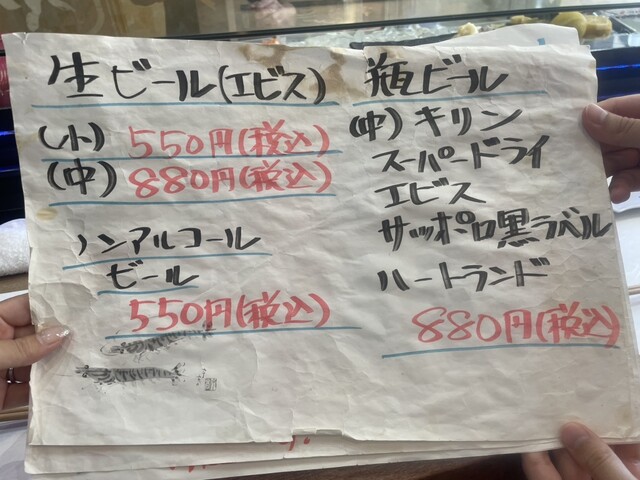 生ビール(エビス)
(小) 550円(税込)
(中) 880円(税込)
ノンアルコール
ビール
550円(税込)
瓶ビール
(中) キリン
スーパードライ
エビス
サッポロ黒ラベル
ハートランド
880円(税込)